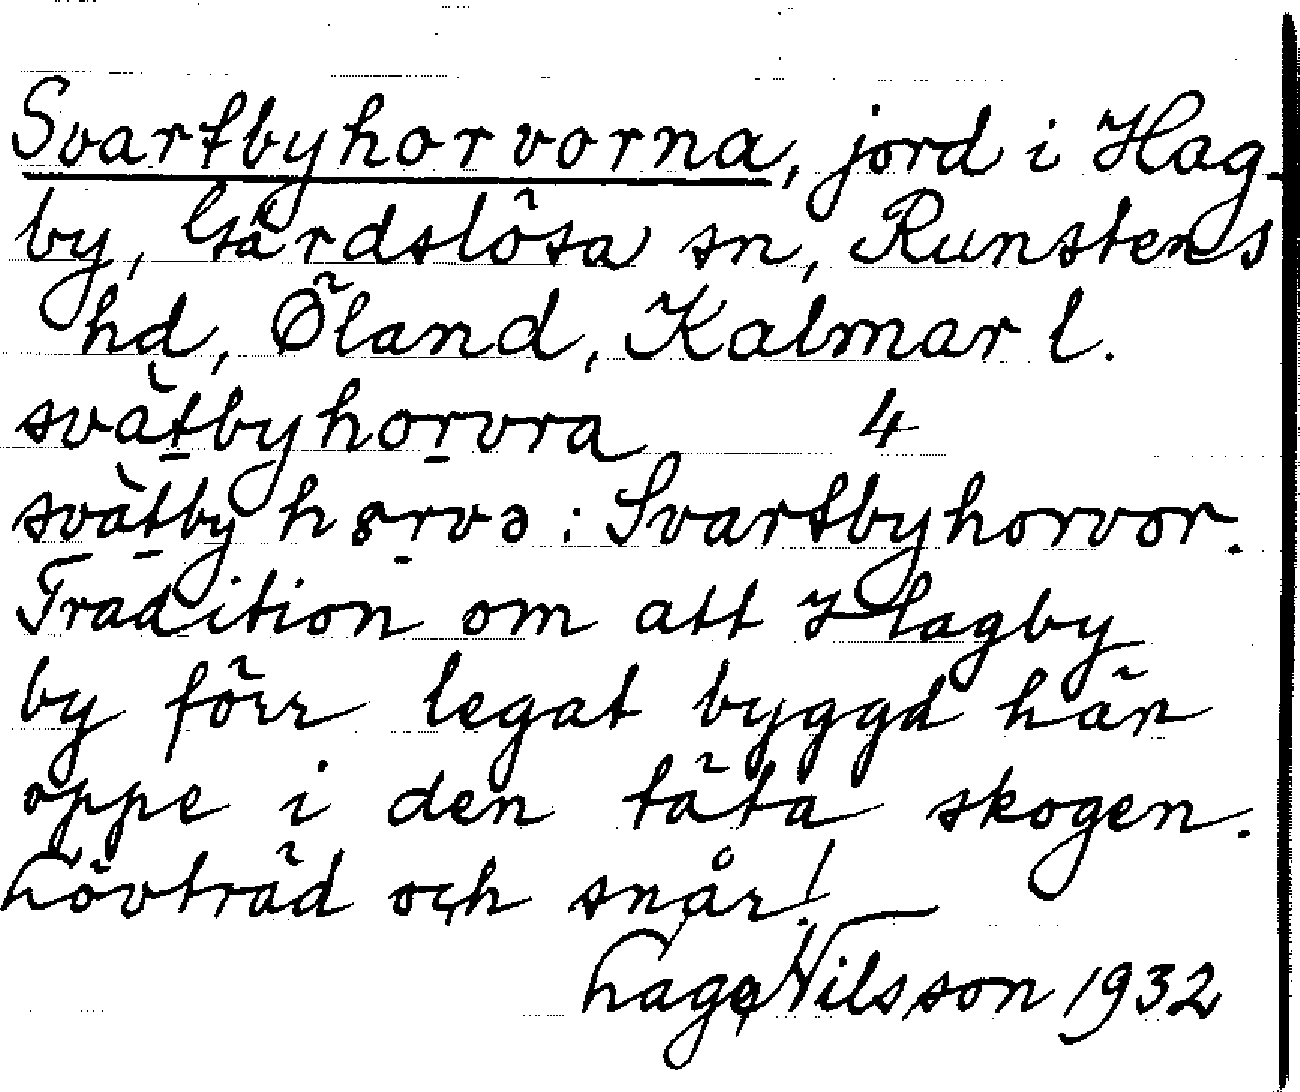 Svartbyhorvorna, jord i Hag-
by, Gärdslösa sn, Runstens
hd, Öland, Kalmar l.
svàt̠byhor̠vra 4
svàt̠by hɵr̠və : Svartbyhorvor.
Tradition om att Hagby
by förr legat byggd här
oppe i den täta skogen.
Lövträd och snår!
Lage Nilsson 1932